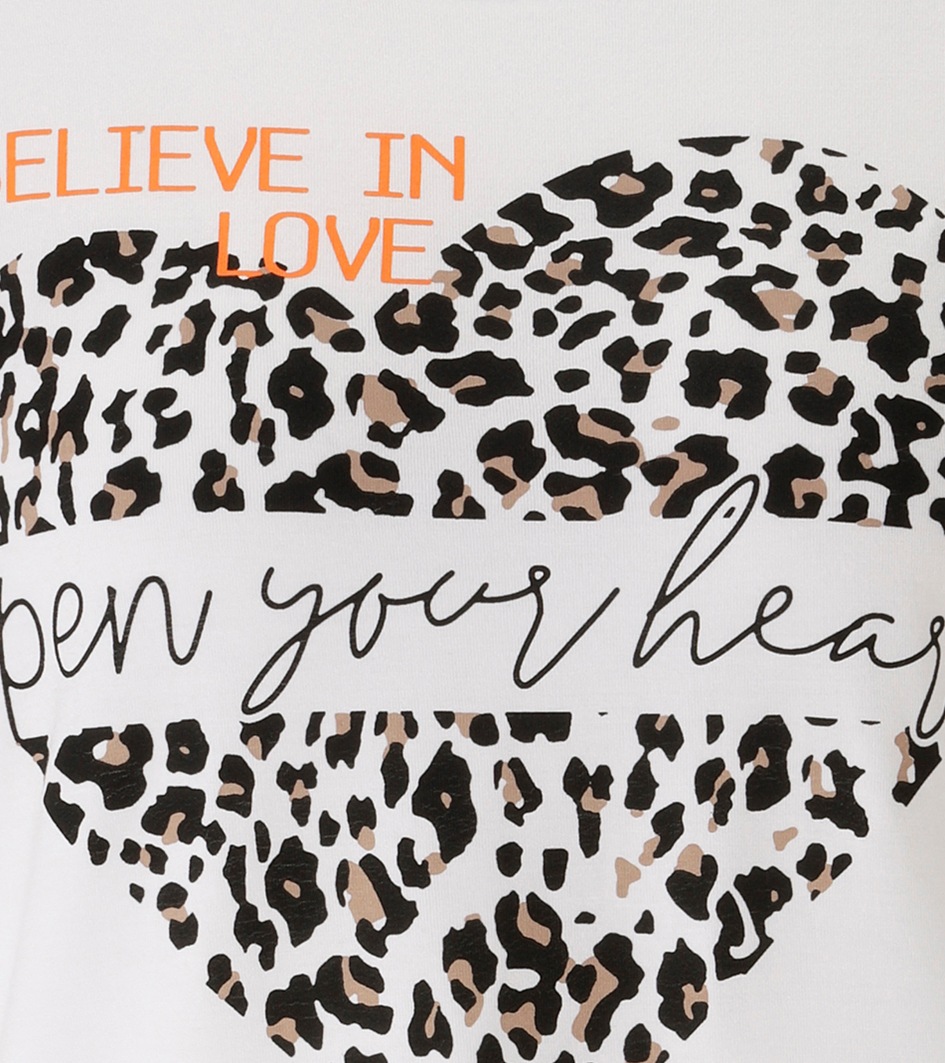 BELIEVE IN
LOVE
open your heart